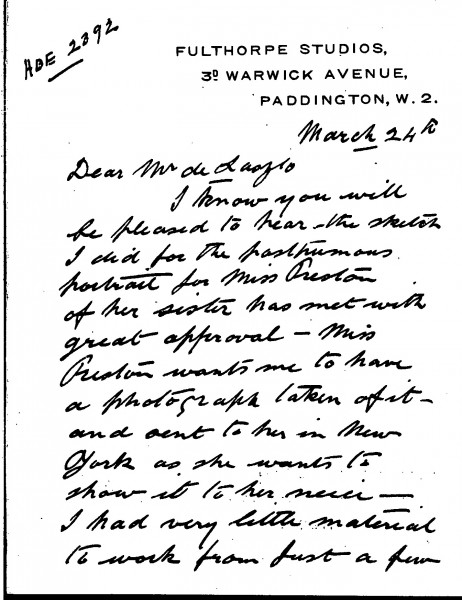 ADE 2392
FULTHORPE STUDIOS,
3D WARWICK AVENUE,
PADDINGTON, W. 2.
March 24th
Dear Mr de Laszlo
I know you will
be pleased to hear the sketch
I did for the posthumous
portrait for Miss Preston
of her sister has met with
great approval — Miss
Preston wants me to have
a photograph taken of it —
and sent to her in New
York as she wants to
show it to her neice —
I had very little material
to work from just a few